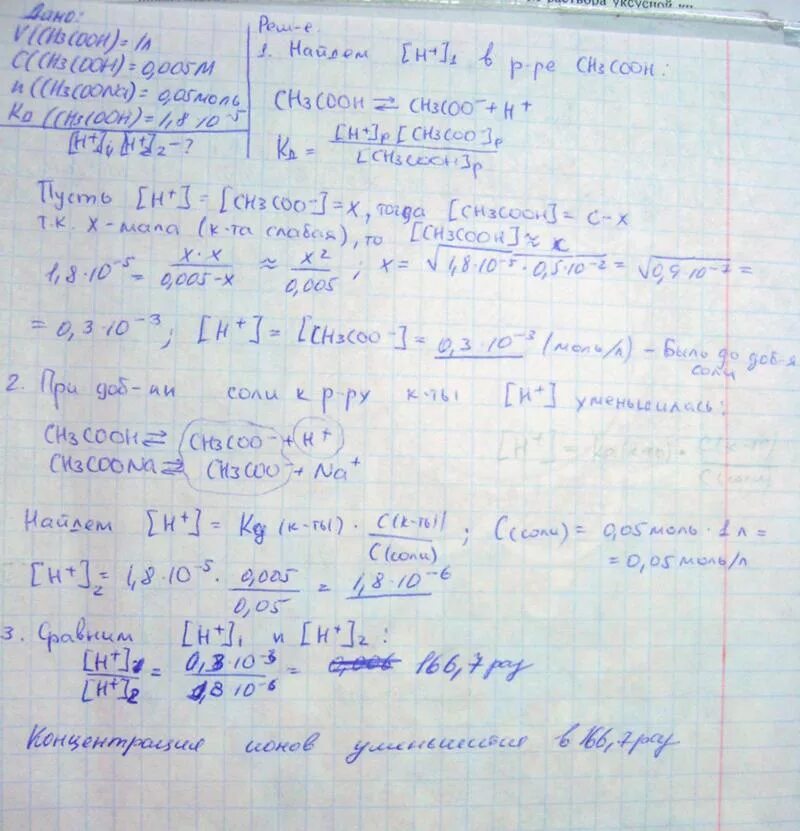 раствора уксусной
Дано:
V(CH3COOH)=1л
C(CH3COOH)=0,005М
n(CH3COONa)=0,05моль
KД(CH3COOH)=1,8·10⁻⁵
[H⁺]₁, [H⁺]₂ -?
Реш-е.
1. Найдем [H⁺]₁ в р-ре CH3COOH:
CH3COOH ⇄ CH3COO⁻ + H⁺
KД = [H⁺]р [CH3COO⁻]р / [CH3COOH]р
Пусть [H⁺] = [CH3COO⁻] = X, тогда [CH3COOH] = C-X
т.к. X-мала (к-та слабая), то [CH3COOH] ≈ C
1,8·10⁻⁵ = X·X / 0,005-X ≈ X² / 0,005 ; X = √1,8·10⁻⁵·0,5·10⁻² = √0,9·10⁻⁷ =
= 0,3·10⁻³; [H⁺] = [CH3COO⁻] = 0,3·10⁻³ (моль/л) - Было до доб-я
соли
2. При доб-ии соли к р-ру к-ты [H⁺] уменьшилась:
CH3COOH ⇄ CH3COO⁻ + H⁺
CH3COONa ⇄ CH3COO⁻ + Na⁺
Найдем [H⁺] = KД (к-ты) · C(к-ты) / C(соли) ; C(соли) = 0,05моль · 1л =
= 0,05моль/л
[H⁺]₂ = 1,8·10⁻⁵ · 0,005 / 0,05 = 1,8·10⁻⁶
3. Сравним [H⁺]₁ и [H⁺]₂:
[H⁺]₁ / [H⁺]₂ = 0,3·10⁻³ / 1,8·10⁻⁶ = 166,7 раз
Концентрация ионов уменьшится в 166,7 раз